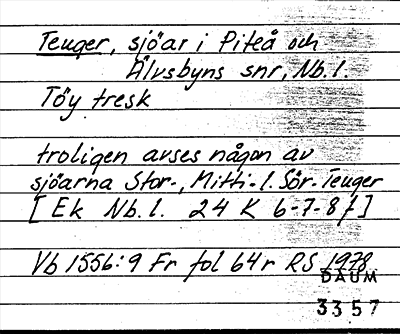 Teuger, sjöar i Piteå och
Älvsbyns snr, Nb. l.
Töy tresk
troligen avses någon av
sjöarna Stor-, Mitti- l. Sör-Teuger
[Ek Nb. l. 24 K 6-7-8 f]
Vb 1556:9 Fr fol 64r RS 1978
DAUM
3357